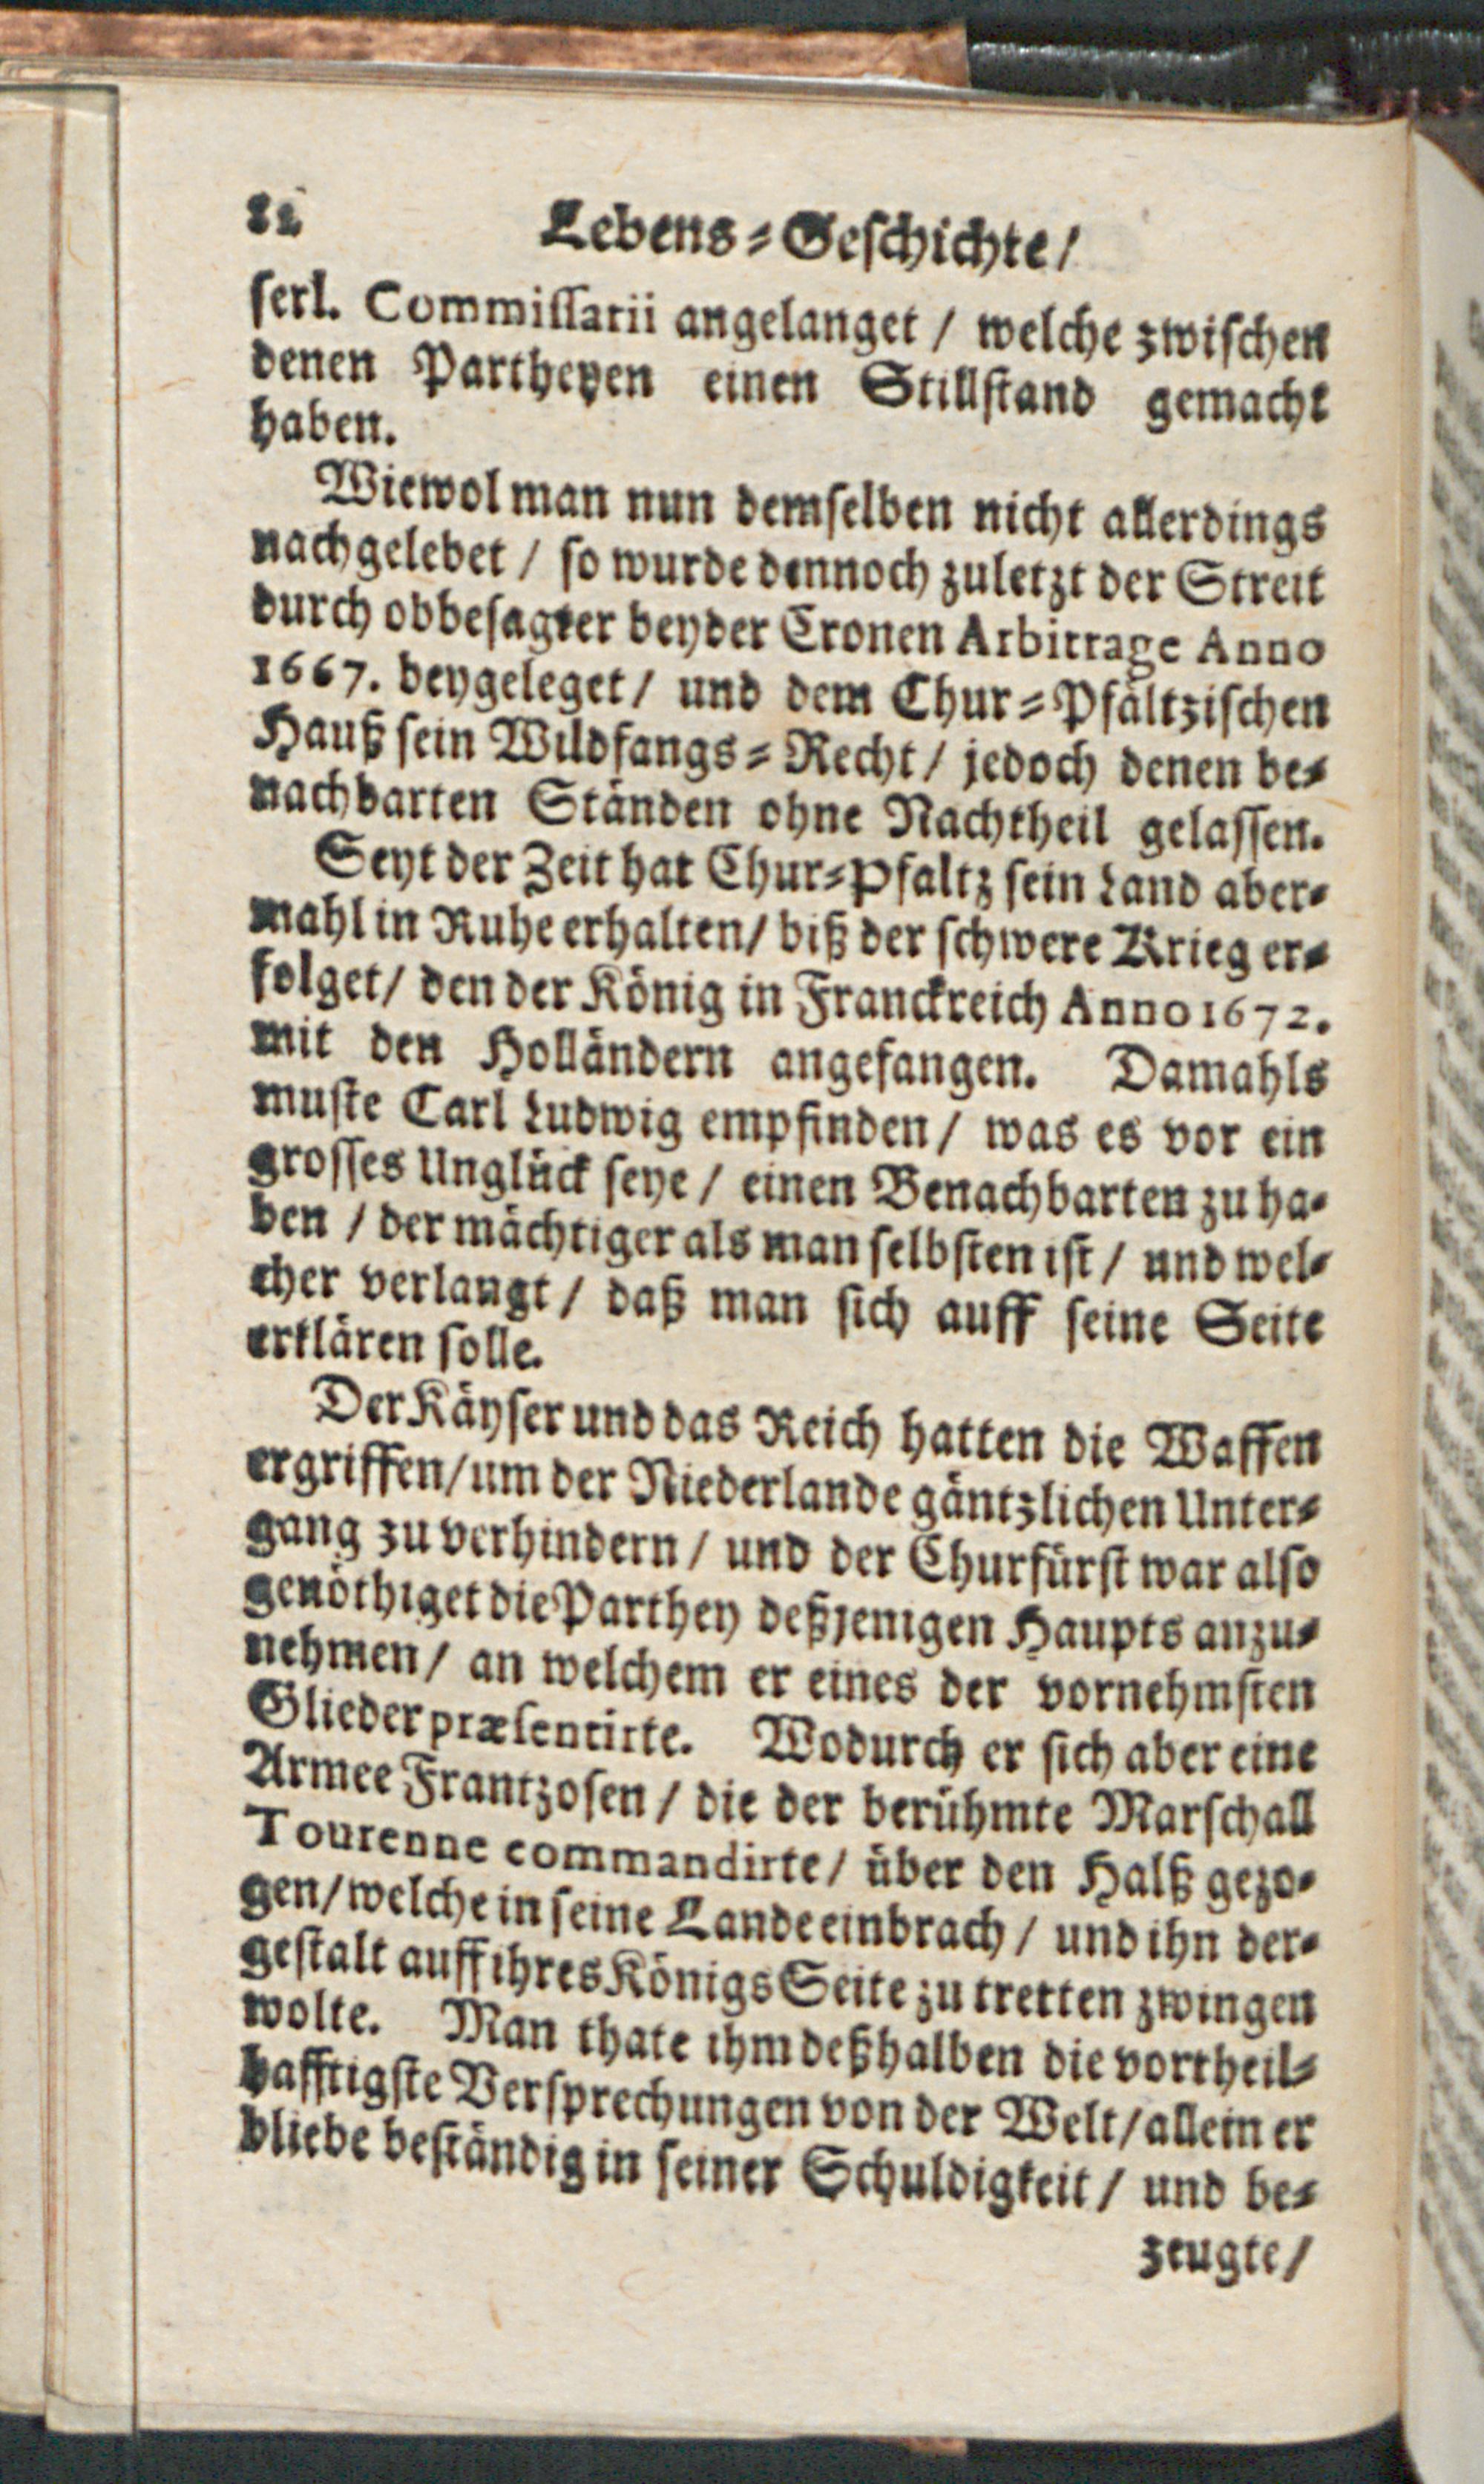 22 Lebens-Geschichte/
serl. Commissarii angelanget / welche zwischen
denen Partheyen einen Stillstand gemacht
haben.
Wiewol man nun demselben nicht allerdings
nachgelebet / so wurde dennoch zuletzt der Streit
durch obbesagter beyder Cronen Arbitrage Anno
1667. beygeleget / und dem Chur-Pfältzischen
Hauß sein Wildfangs-Recht / jedoch denen be-
nachbarten Ständen ohne Nachtheil gelassen.
Seyt der Zeit hat Chur-Pfaltz sein Land aber-
mahl in Ruhe erhalten / biß der schwere Krieg er-
folget / den der König in Franckreich Anno 1672.
mit den Holländern angefangen. Damahls
muste Carl Ludwig empfinden / was es vor ein
grosses Unglück seye / einen Benachbarten zu ha-
ben / der mächtiger als man selbsten ist / und wel-
cher verlangt / daß man sich auff seine Seite
erklären solle.
Der Käyser und das Reich hatten die Waffen
ergriffen / um der Niederlande gäntzlichen Unter-
gang zu verhindern / und der Churfürst war also
genöthiget die Parthey deßjenigen Haupts anzu-
nehmen / an welchem er eines der vornehmsten
Glieder præsentirte. Wodurch er sich aber eine
Armee Frantzosen / die der berühmte Marschall
Tourenne commandirte / über den Halß gezo-
gen / welche in seine Lande einbrach / und ihn der-
gestalt auff ihres Königs Seite zu tretten zwingen
wolte. Man thate ihm deßhalben die vortheil-
hafftigste Versprechungen von der Welt / allein er
bliebe beständig in seiner Schuldigkeit / und be-
zeugte /